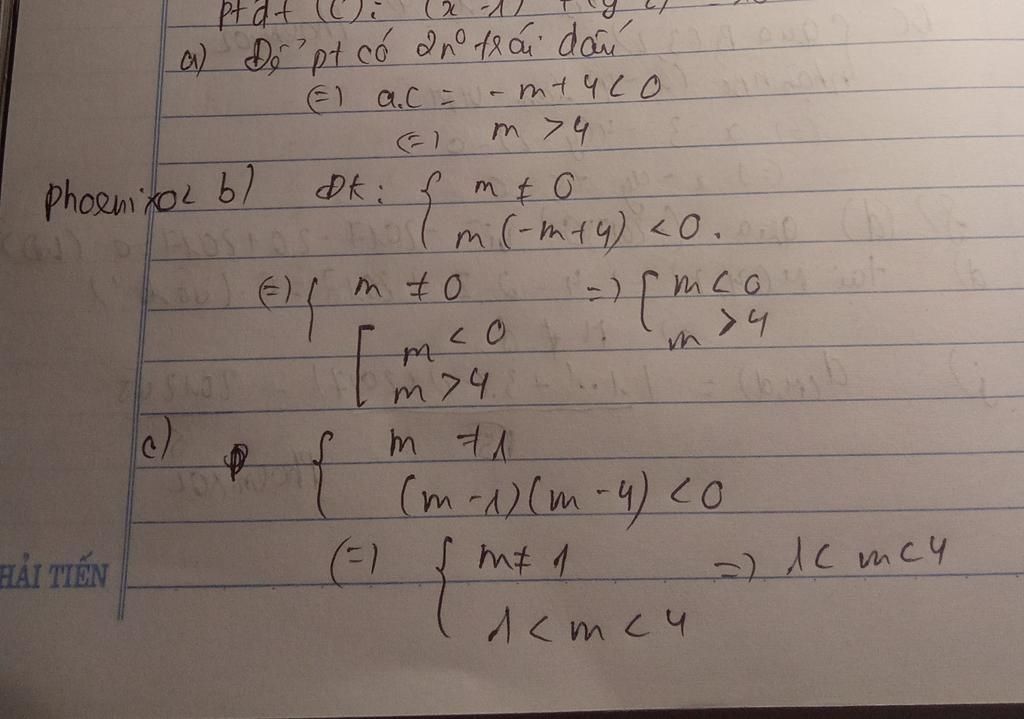 ptđt (C): (x -1)
a) Để pt có 2n⁰ trái dấu
(=) a.c = - m + 4 < 0
(=) m > 4
Phoenixoc b) ĐK: { m ≠ 0
m (-m+4) < 0.
(=) { m ≠ 0 => [ m < 0
[ m < 0 m > 4
m > 4
c) { m ≠ 1
(m -1)(m - 4) < 0
(=) { m ≠ 1 => 1 < m < 4
1 < m < 4
HẢI TIẾN